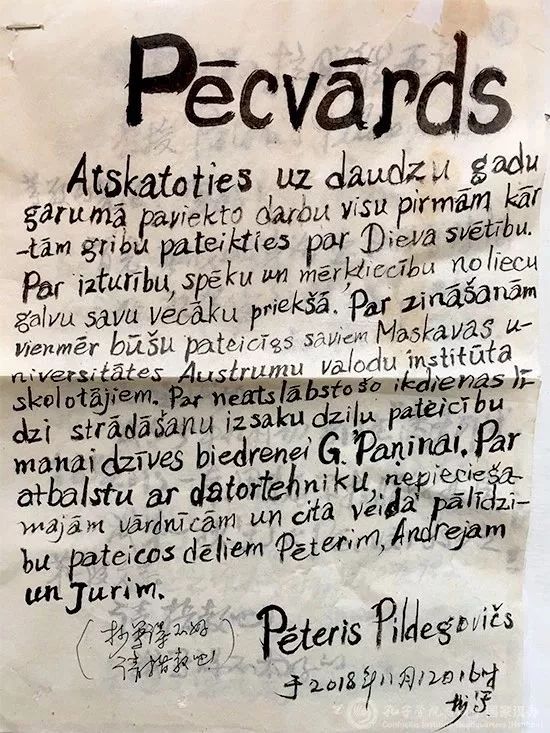 Pēcvārds
Atskatoties uz daudzu gadu
garumā paviekto darbu visu pirmām kār
-tām gribu pateikties par Dieva svētību.
Par izturību, spēku un mērķtiecību noliecu
galvu savu vecāku priekšā. Par zināšanām
vienmēr būšu pateicīgs saviem Maskavas u-
niversitātes Austrumu valodu institūta
skolotājiem. Par neatslābstošo ikdienas lī-
dzi strādāšanu izsaku dziļu pateicību
manai dzīves biedrenei G. Paņinai. Par
atbalstu ar datortehniku, nepiecieša-
majām vārdnīcām un cita veida palīdzī-
bu pateicos dēliem Pēterim, Andrejam
un Jurim.
请指教吧!
Pēteris Pildegovičs
于2018年11月12日16时